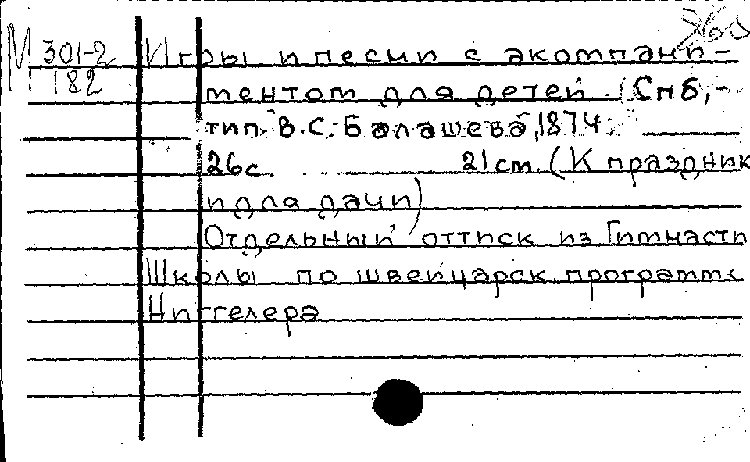 М 301-2 Игры и песни с акомпани-
182 ментом для детей. (Спб,-
тип. В.С. Балашева, 1874.
26с. 21 см. (К праздник
и для дачи)
Отдельный оттиск из Гимнасти
Школы по швейцарск программе
Ниггелера